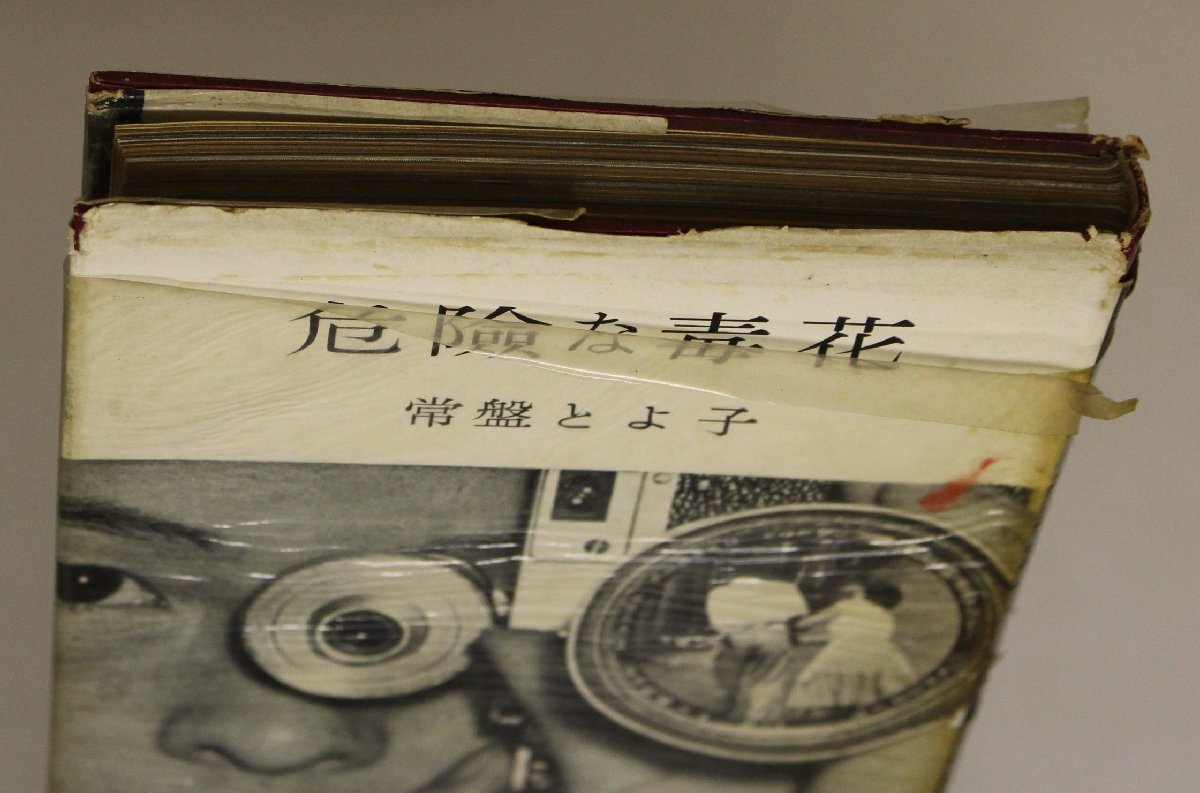 危険な毒花
常盤とよ子